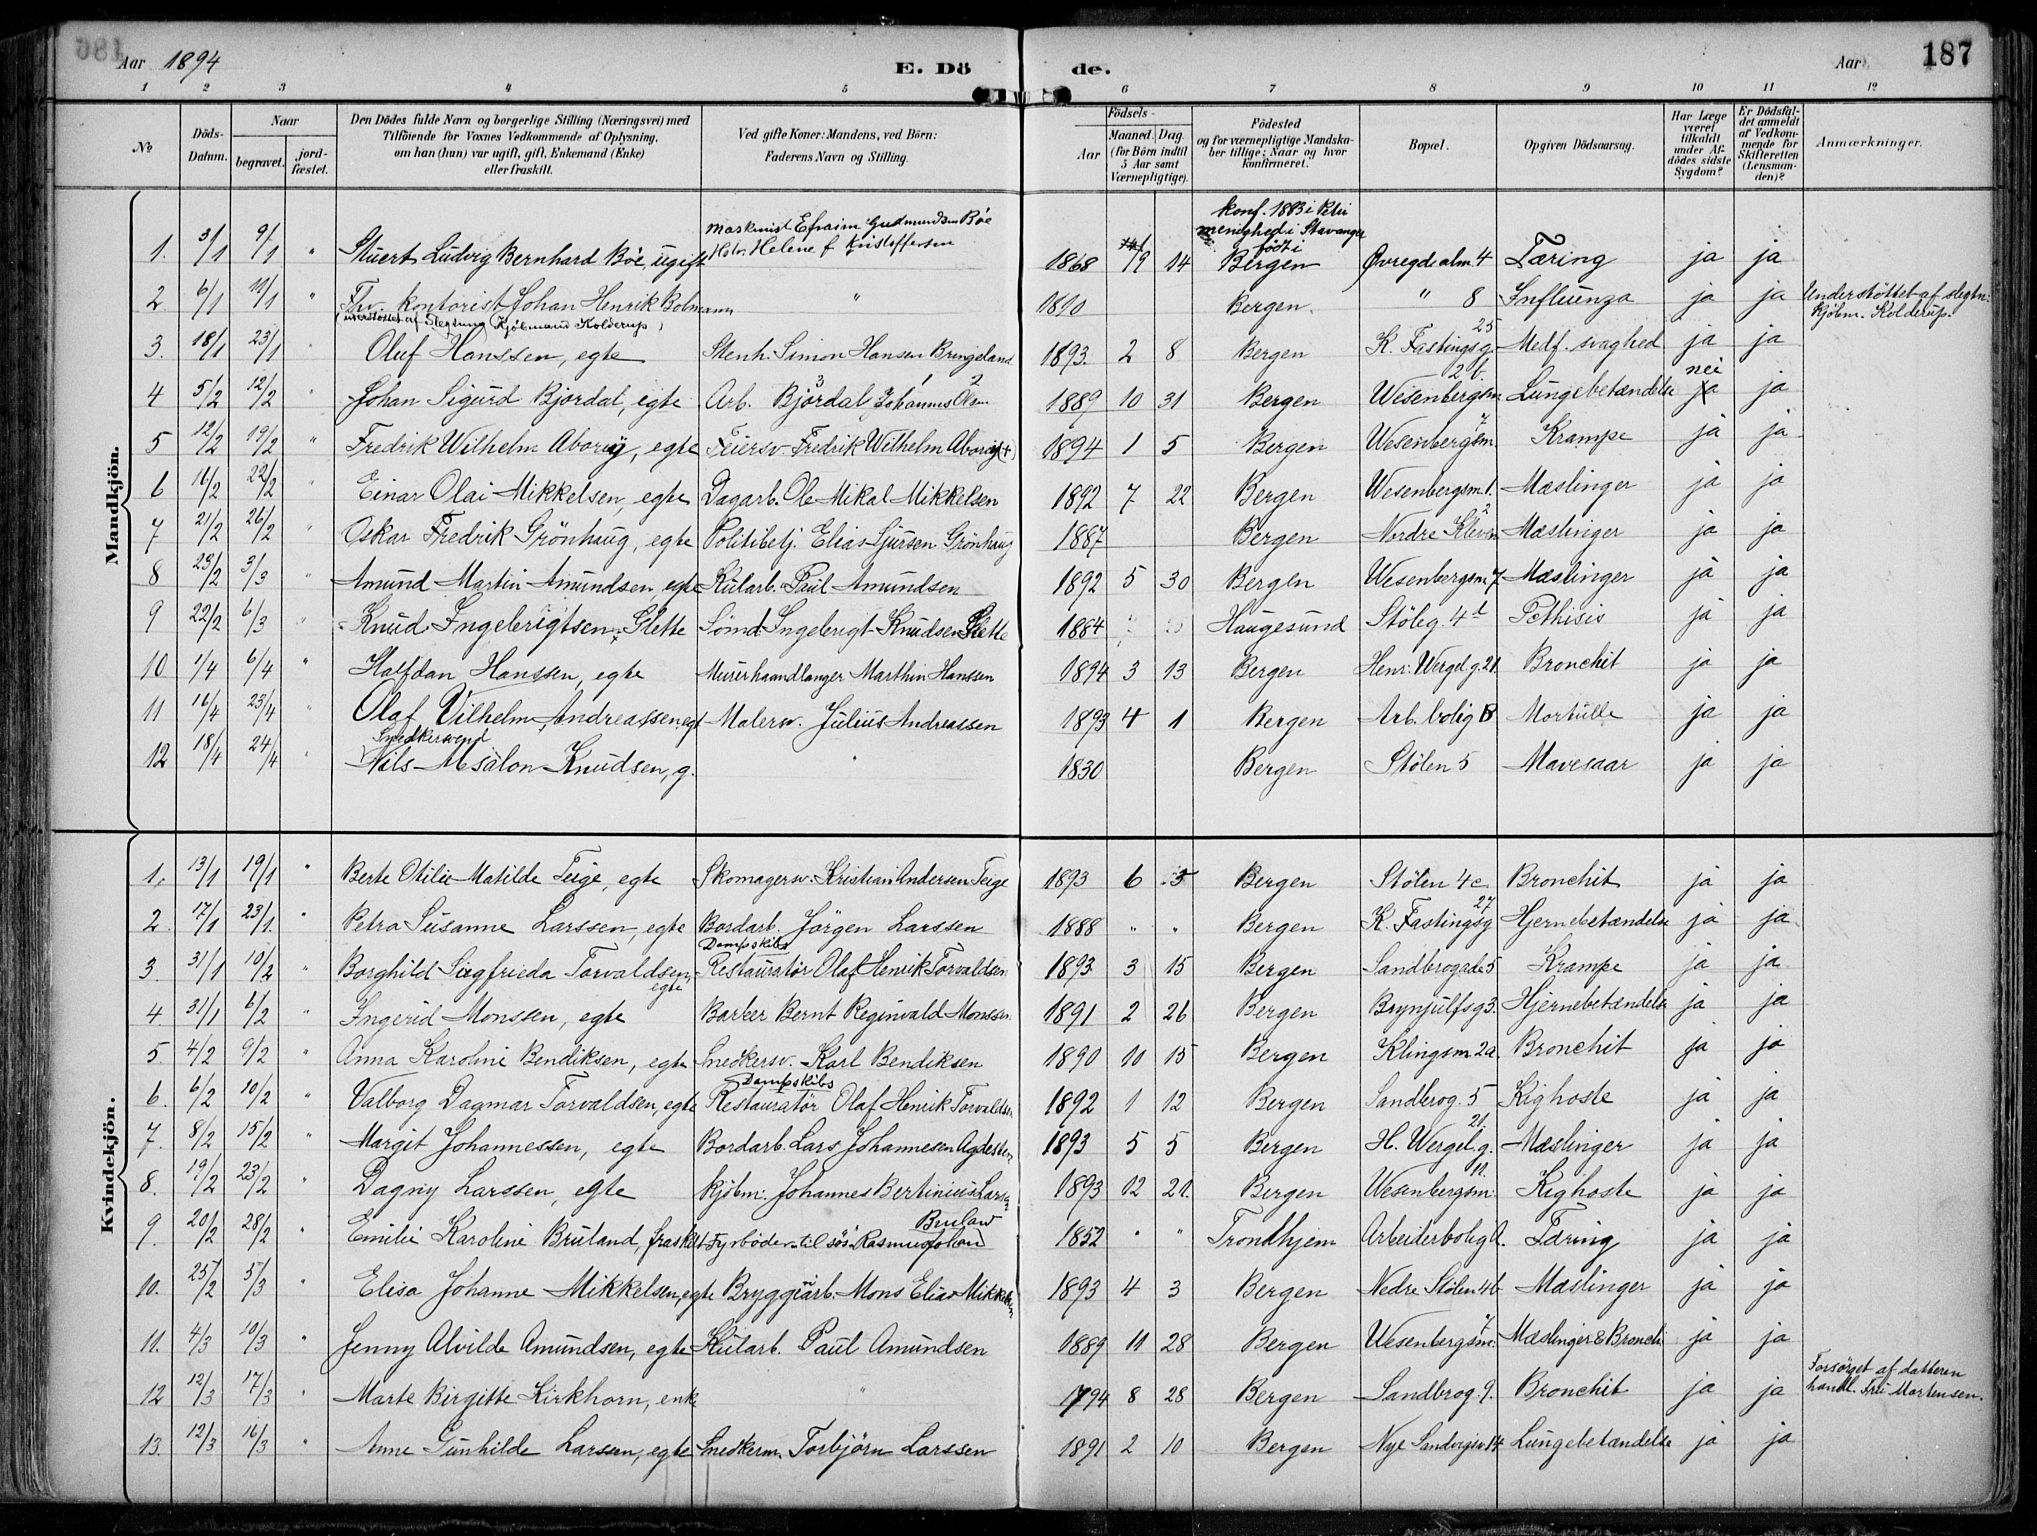 Aar 1894 E. Dö de. Aar 187
1 2 3 4 5 6 7 8 9 10 11 12
No Döds-Datum. Naar begravet. jord-fæstet. Den Dödes fulde Navn og borgerlige Stilling (Næringsvei) med Tilföiende for Voxnes Vedkommende af Oplysning, om han (hun) var ugift, gift, Enkemand (Enke) eller fraskilt. Ved gifte Koner: Mandens, ved Börn: Faderens Navn og Stilling. Födsels- Aar Maaned. Dag. (for Börn indtil 5 Aar samt Værnepligtige). Födested og for værnepligtige Mandskaber tillige: Naar og hvor konfirmeret. Bopæl. Opgiven Dödsaarsag. Har Læge været tilkaldt under Afdödes sidste Sygdom? Er Dödsfaldet anmeldt af Vedkommende for Skifteretten (Lensmanden)? Anmærkninger.
Mandkjön.
1. 3/1 9/1 " Stuert Ludvig Bernhard Böe, ugift Maskinist Efraim Gudmundsen Böe Hstr. Helene f. Kristoffersen 1868 9 14 konf. 1883 i Petri menighed i Stavanger född i Bergen Øvregdealm. 4 Tæring ja ja
2 6/1 11/1 " Fhv. kontorist Johan Henrik Bolmann " Bergen. " 8 Influenza ja ja Understöttet af slegtn: kjöbm. Kolderup.
(understöttet af Slegtning Kjöbmand Kolderup)
3. 18/1 23/1 " Oluf Hanssen, egte Stenh. Simon Hansen Bringeland 1893. 2 8 Bergen K. Fastingsg. 25 Medf. svaghed ja ja
4 5/2 12/2 " Johan Sigurd Bjordal, egte Arb. Björdal Johannes Olsen 3 1 2 1889 10 31 Bergen Wesenbergsm 2b. Lungebetændelse nei ja ja
5 12/2 19/2 " Fredrik Wilhelm Aborig, egte Feiersv. Fredrik Wilhelm Aborig (+) 1894 1 5 Bergen Wesenbergsm. 7 Krampe ja ja
6 16/2 22/2 " Einar Olai Mikkelsen, egte Dagarb. Ole Mikal Mikkelsen 1892 7 22 Bergen Wesenbergsm. 1. Mæslinger ja ja
7 21/2 26/2 " Oskar Fredrik Grönhaug, egte Politibetj. Elias Sjursen Grönhaug 1887 Bergen Nedre Kleven 2 Mæslinger ja ja
8 23/2 3/3 " Amund Martin Amundsen, egte Kularb. Paul Amundsen 1892 5 30 Bergen Wesenbergsm 7 Mæslinger ja ja
9 22/2 6/3 " Knud Ingebrigtsen Slette Sömd. Ingebrigt Knudsen Slette 1884 Haugesund Stöleg. 4d Pethisis ja ja
10 1/4 6/4 " Halfdan Hanssen, egte Murerhaandlanger Marthin Hanssen 1894 3 13 Bergen Henr. Wergel. g. 21 Bronchit ja ja
11 16/4 23/4 " Olaf Vilhelm Andreassen, egt Malersv. Julius Andreassen 1893 4 1 Bergen Arb. bolig B Morbille ja ja
12 18/4 24/4 " Snedkersvend Nils Absalon Knudsen, g. " 1830 Bergen Stölen 5 Mavesaar ja ja
Kvindekjön.
1. 13/1 19/1 " Berte Otilie Matilde Teige, egte Skomagersv. Kristian Andersen Teige 1893 6 3 Bergen Stölen 4c Bronchit ja ja
2. 17/1 23/1. " Petra Susanne Larssen, egte Bordarb. Jörgen Larssen 1888 " " Bergen K. Fastingsg 27 Hjernebetændelse ja ja
3. 31/1 10/2 " Borghild Sigfrieda Torvaldsen, egte Dampskibs Restauratör Olaf Henrik Torvaldsen 1893 3 15 Bergen Sandbrogade 5 Krampe ja ja
4. 31/1 6/2 " Ingerid Monssen, egte Barber Bernt Reginvald Monssen 1891 2 26 Bergen Brynjulfsg 3. Hjernebetændelse ja ja
5. 4/2 9/2 " Anna Karoline Bendiksen, egte Snedkersv. Karl Bendiksen 1890 10 15 Bergen Klingsm. 2a. Bronchit ja ja
6. 6/2 10/2 " Valborg Dagmar Torvaldsen, egte Dampskibs Restauratör Olaf Henrik Torvaldsn 1892 1 12 Bergen Sandbrog. 5 Kighoste ja ja
7. 8/2 15/2 " Margit Johannessen, egte Bordarb. Lars Johannesen Agdesten 1893 5 5 Bergen H. Wergel. g. 21 Mæslinger ja ja
8. 19/2 23/2 " Dagny Larssen, egte Kjöbm. Johannes Bertinius Larsen 1893 12 21. Bergen Wesenbergsm. 11. Kighoste ja ja
9. 20/2 28/2 " Emilie Karoline Bruland, fraskilt Fyrböder til søs Rasmus Johan Bruland 1852 " " Trondhjem Arbeiderbolig A. Tæring ja ja
10. 25/2 5/3 " Elisa Johanne Mikkelsen, egte Bryggiarb. Mons Elias Mikkelsen 1893 4 3 Bergen Nedre Stölen 4b Mæslinger ja ja
11. 4/3 10/3 " Jenny Alvilde Amundsen, egte Kularb. Paul Amundsen 1889 11 28 Bergen Wesenbergsm. 7 Mæslinger & Bronch. ja ja
12 12/3 17/3 " Marte Birgitte Kirkhorn, enke " 1794 8 28 Bergen Sandbrog. 9. Bronchit ja ja Forsörget af datteren handl. Fru Martensen.
13. 12/3 16/3 " Anne Gunhilde Larsen, egte Snedkerm. Torbjörn Larssen 1891 2 10 Bergen Nye Sandvigsv. 14 Lungebetændelse ja ja